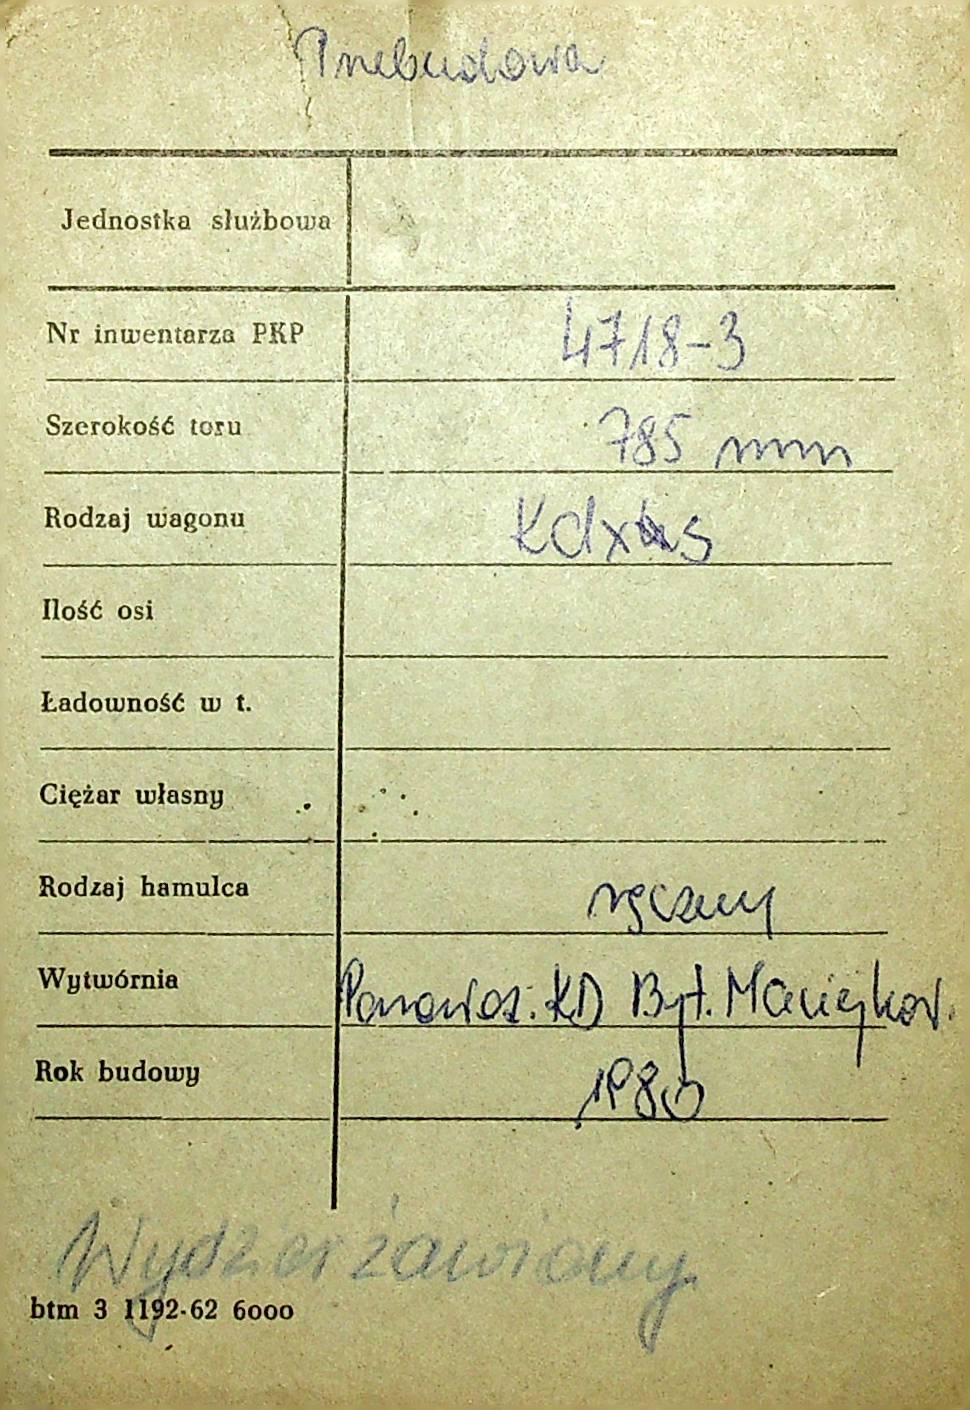 Przebudowa
Jednostka służbowa
Nr inwentarza PKP 4718-3
Szerokość toru 785 mm
Rodzaj wagonu Kdxs
Ilość osi
Ładowność w t.
Ciężar własny
Rodzaj hamulca ręczny
Wytwórnia Parowoz. KD Byt. Maciejkow.
Rok budowy 1980
Wydzierżawiony
btm 3 1192-62 6000